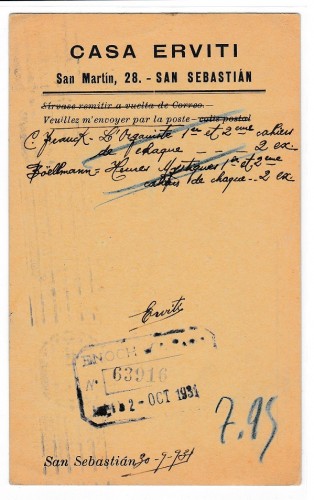 CASA ERVITI
San Martín, 28. - SAN SEBASTIÁN
Sírvase remitir a vuelta de Correo.
Veuillez m'envoyer par la poste - colis postal
C. Franck - L'Organiste 1er et 2eme cahiers
de chaque - - - - 2 ex.
Böellmann = Heures Mystiques 1er et 2eme
cahiers de chaque - - 2 ex.
Erviti
ENOCH
Nº 63916
2 - OCT 1931
7.95
San Sebastián 30-9-931